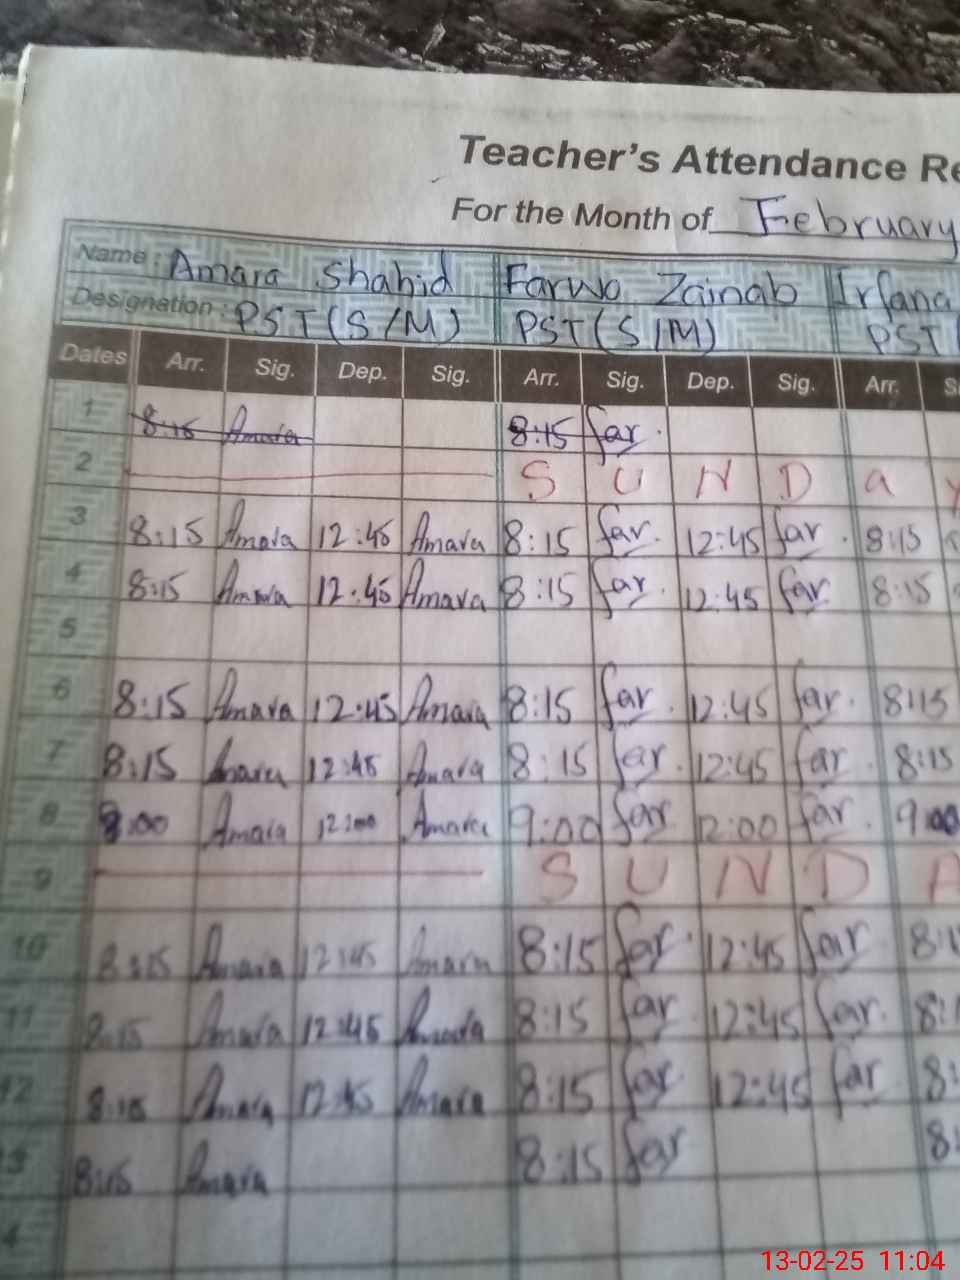 Teacher's Attendance Re
For the Month of February
Name: Amara Shahid Farwa Zainab Irfana
Designation: PST(S/M) PST(S/M) PST(
Dates Arr. Sig. Dep. Sig. Arr. Sig. Dep. Sig. Arr. S
1 8:15 Amara 8:15 far.
2 S U N D a y
3 8:15 Amara 12:45 Amara 8:15 far. 12:45 far. 8:15
4 8:15 Amara 12:45 Amara 8:15 far. 12:45 far. 8:15
5
6 8:15 Amara 12:45 Amara 8:15 far. 12:45 far. 8:15
7 8:15 Amara 12:45 Amara 8:15 far. 12:45 far. 8:15
8 9:00 Amara 12:00 Amara 9:00 far 12:00 far. 9:00
9 S U N D A
10 8:15 Amara 12:45 Amara 8:15 far. 12:45 far 8:1
11 8:15 Amara 12:45 Amara 8:15 far 12:45 far. 8:1
12 8:15 Amara 12:45 Amara 8:15 far 12:45 far 8:
3 8:15 Amara 8:15 far 8:
4
13-02-25 11:04